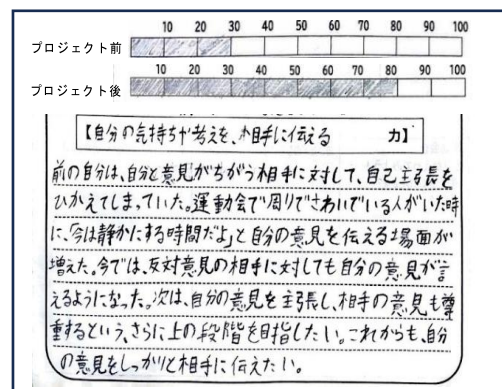 10 20 30 40 50 60 70 80 90 100
プロジェクト前
10 20 30 40 50 60 70 80 90 100
プロジェクト後
【自分の気持ちや考えを、相手に伝える 力】
前の自分は、自分と意見がちがう相手に対して、自己主張を
ひかえてしまっていた。運動会で周りでさわいでいる人がいた時
に、「今は静かにする時間だよ」と自分の意見を伝える場面が
増えた。今では、反対意見の相手に対しても自分の意見が言
えるようになった。次は、自分の意見を主張し、相手の意見も尊
重するという、さらに上の段階を目指したい。これからも、自分
の意見をしっかりと相手に伝えたい。